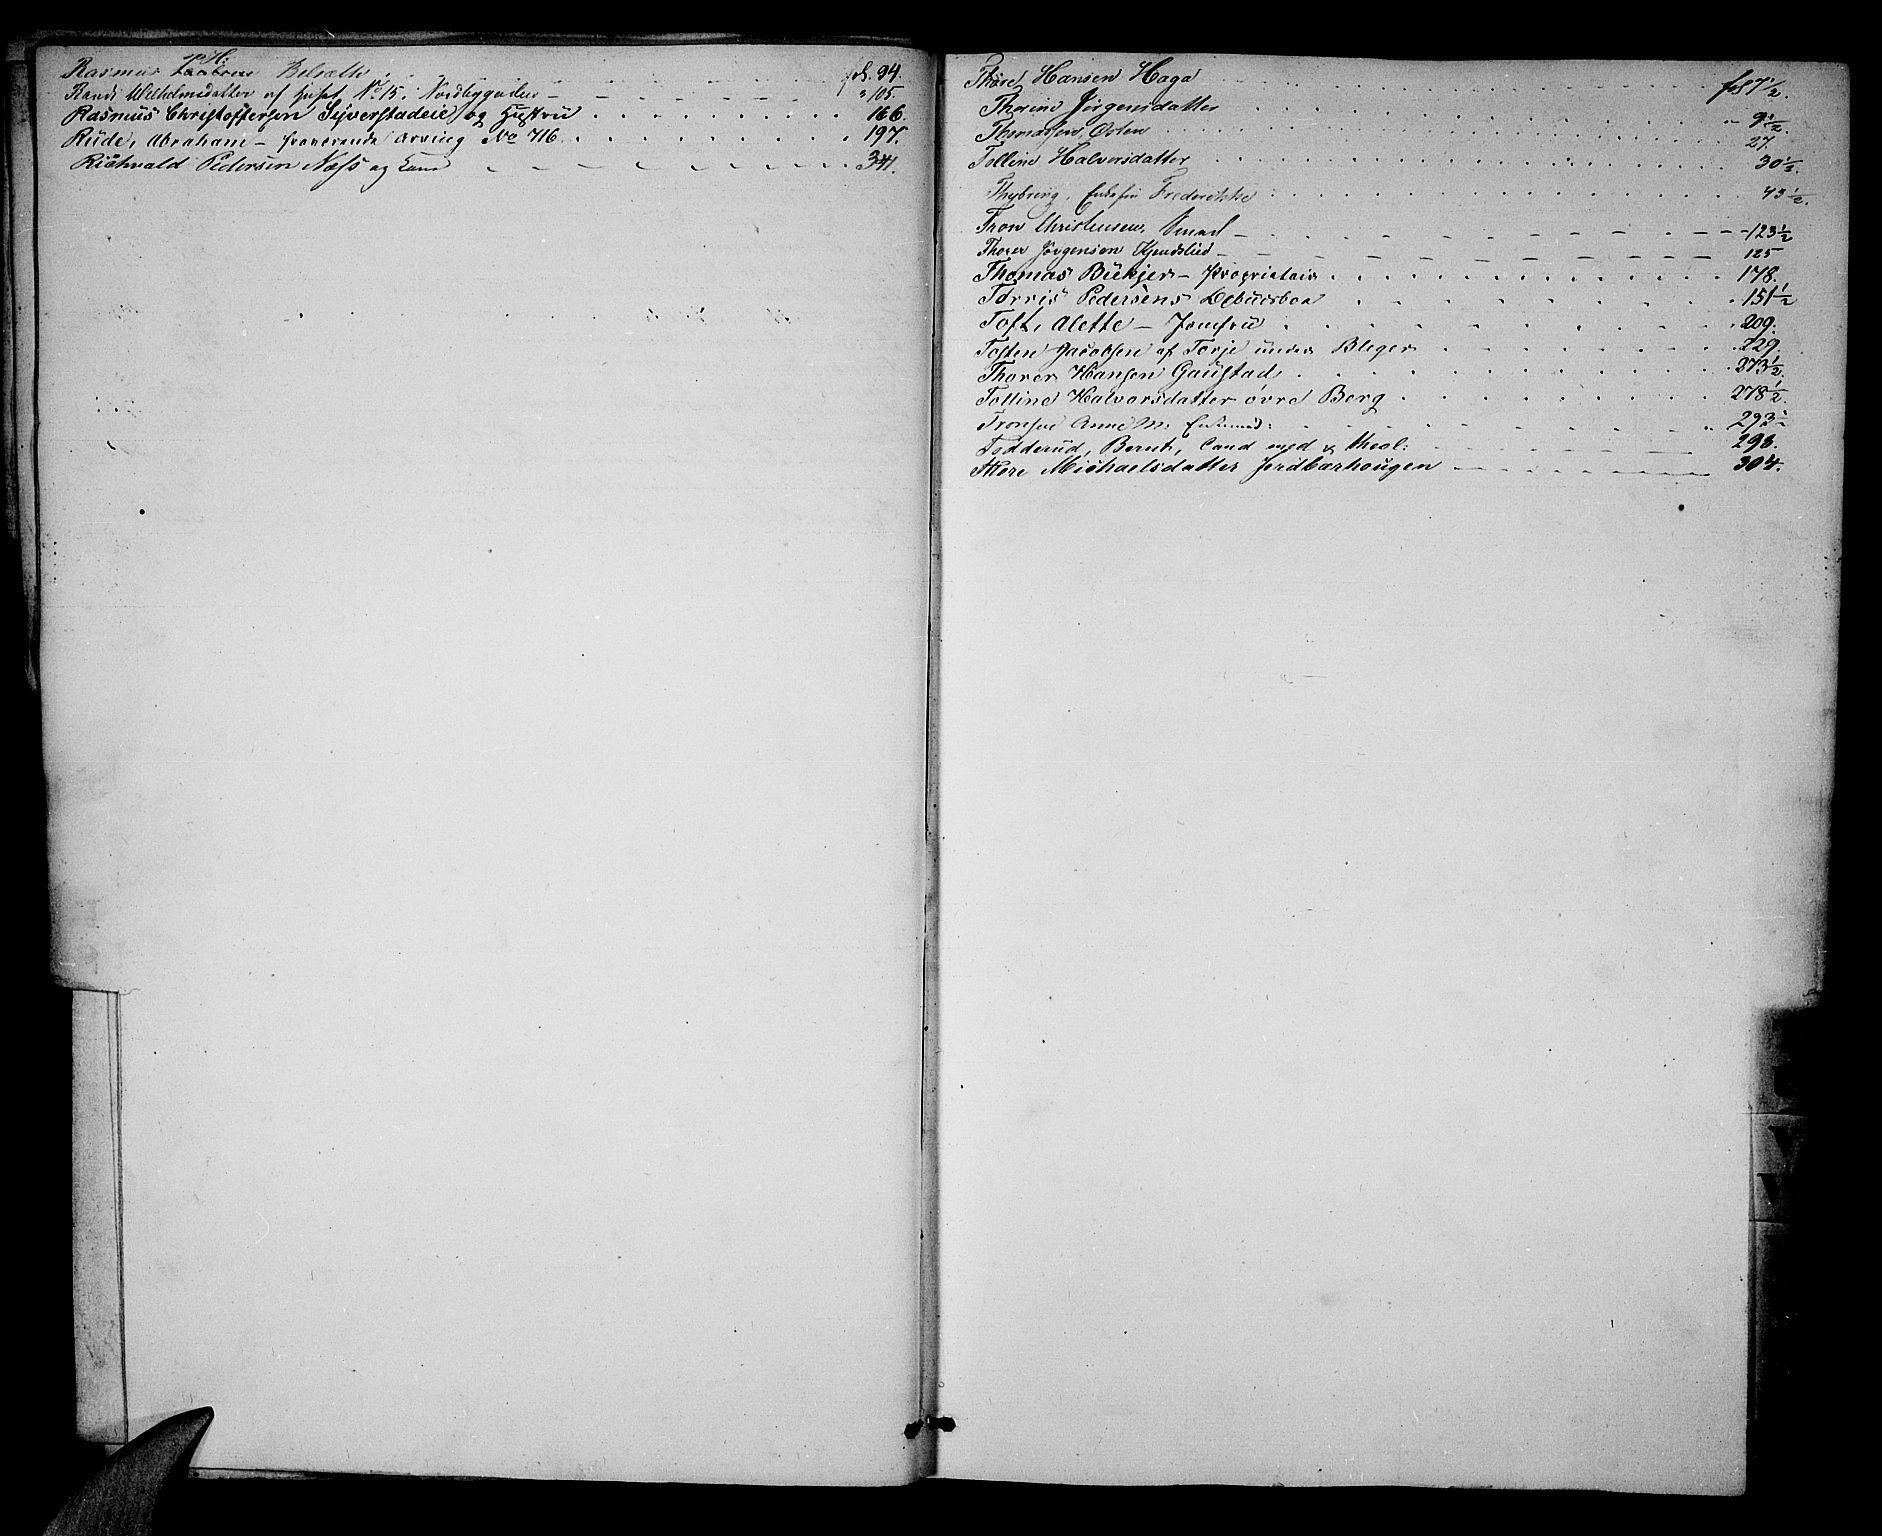 P. H.
Rasmus Belsæth fol. 94.
Randi Wilhelmsdatter af Huset No 15. Nordbygaden " 105.
Rasmus Christoffersen Syverstadeie og Hustru 166.
Rude, Abraham – fraværende Arving No 716. 197.
Richvald Pedersen Næss og Kone 341.
Thore Hansen Haga fol 7 1/2.
Thorine Jörgensdatter 9 1/2.
Thomassen, Osten 27.
Tolline Halvorsdatter 30 1/2.
Thybring, Enkefru Frederikke 45 1/2.
Tron Christensen, Smed 123 1/2
Thorer Jörgensen Kjendslied 125
Thomas Birkjer – Proprietair 178.
Torris Pedersens Dödsbo 151 1/2
Toft, Alette – Jomfru 209.
Tosten Jacobsen af Torje under Bleger 229
Thorer Hansen Gaustad 273 1/2.
Tolline Halvorsdatter övre Berg 278 1/2.
Tronsen Anne M. " 293 1/2
Todderud, Bernt, Cand med & theol: 298.
Thore Michaelsdatter Jordbærhougen 304.
V